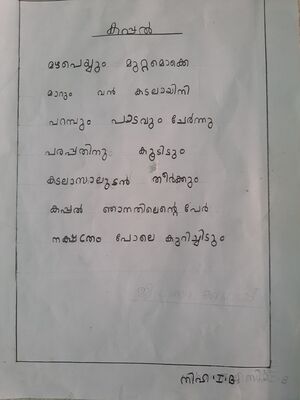 കപ്പൽ
മഴപെയ്യും മുറ്റമൊക്കെ
മാറും വൻ കടലായിനി
പറമ്പും പാടവും ചേർന്നു
പരപ്പതിനു കൂടിടും
കടലാസാലുടൻ തീർക്കും
കപ്പൽ ഞാനതിലെന്റെ പേർ
നക്ഷത്രം പോലെ കുറിച്ചിടും
നിഹ I B